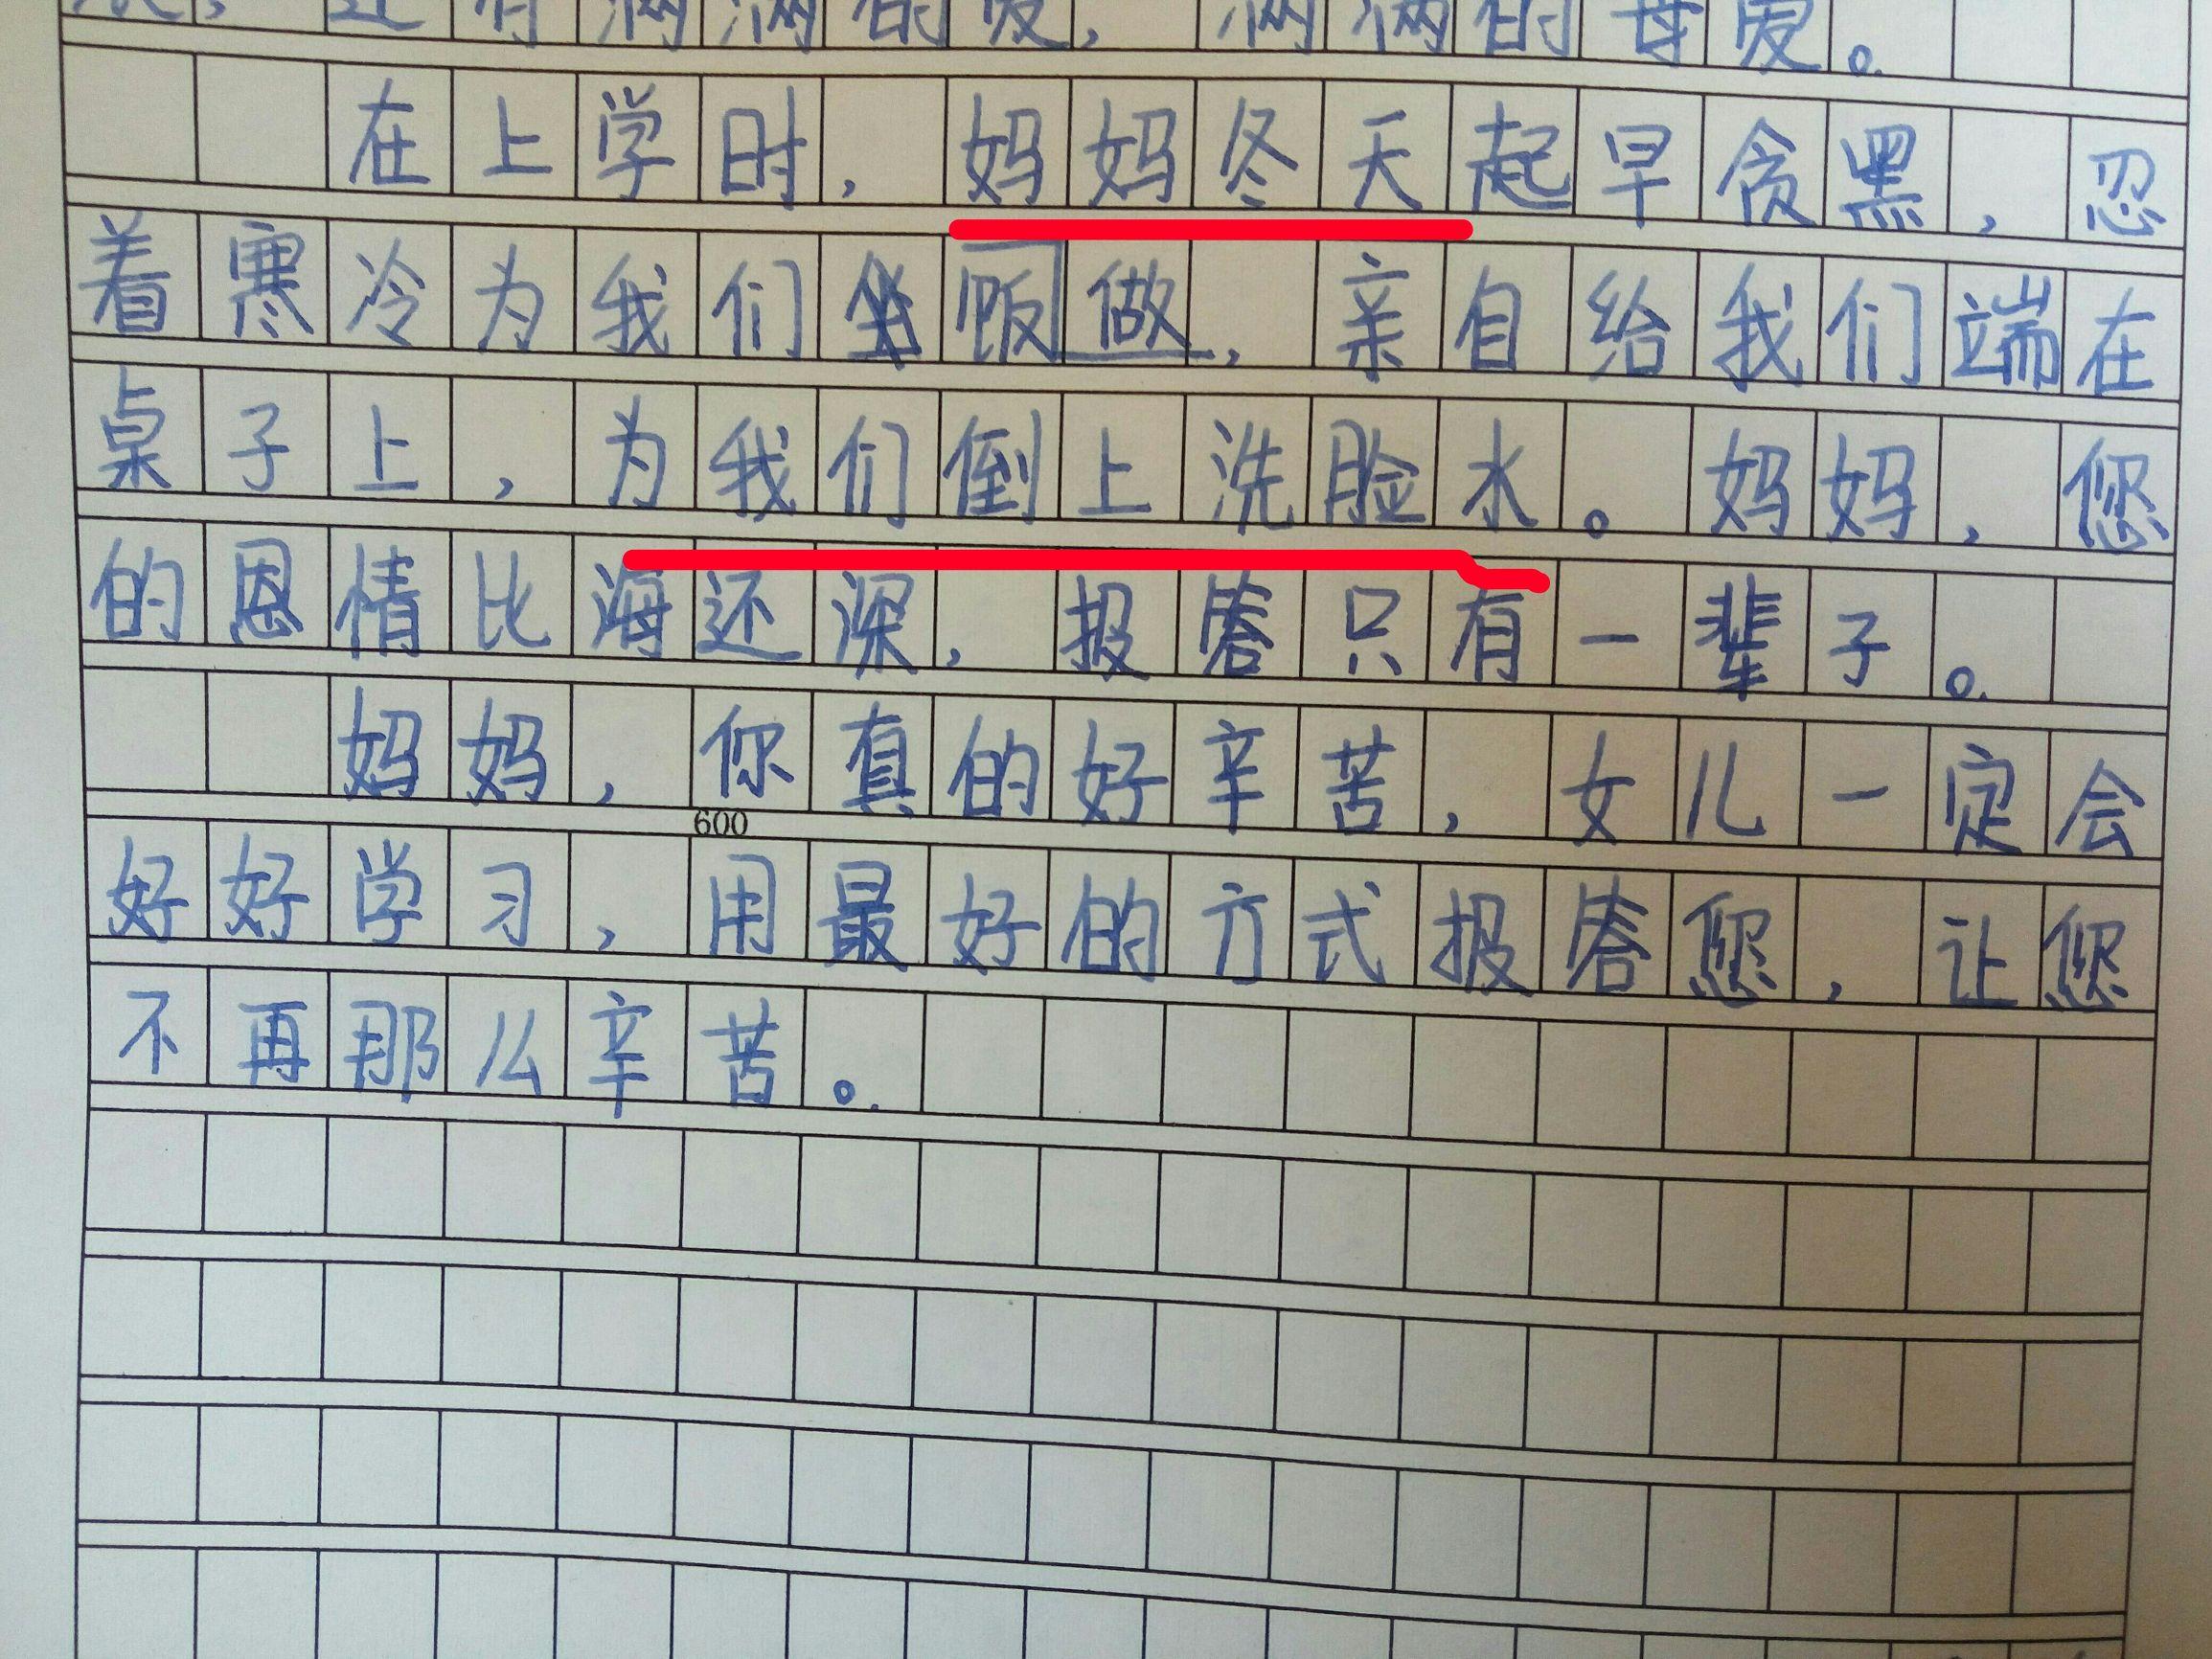 还有满满的爱，满满的母爱。
在上学时，妈妈冬天起早贪黑，忍
着寒冷为我们饭做，亲自给我们端在
桌子上，为我们倒上洗脸水。妈妈，您
的恩情比海还深，报答只有一辈子。
妈妈，你真的好辛苦，女儿一定会
600
好好学习，用最好的方式报答您，让您
不再那么辛苦。